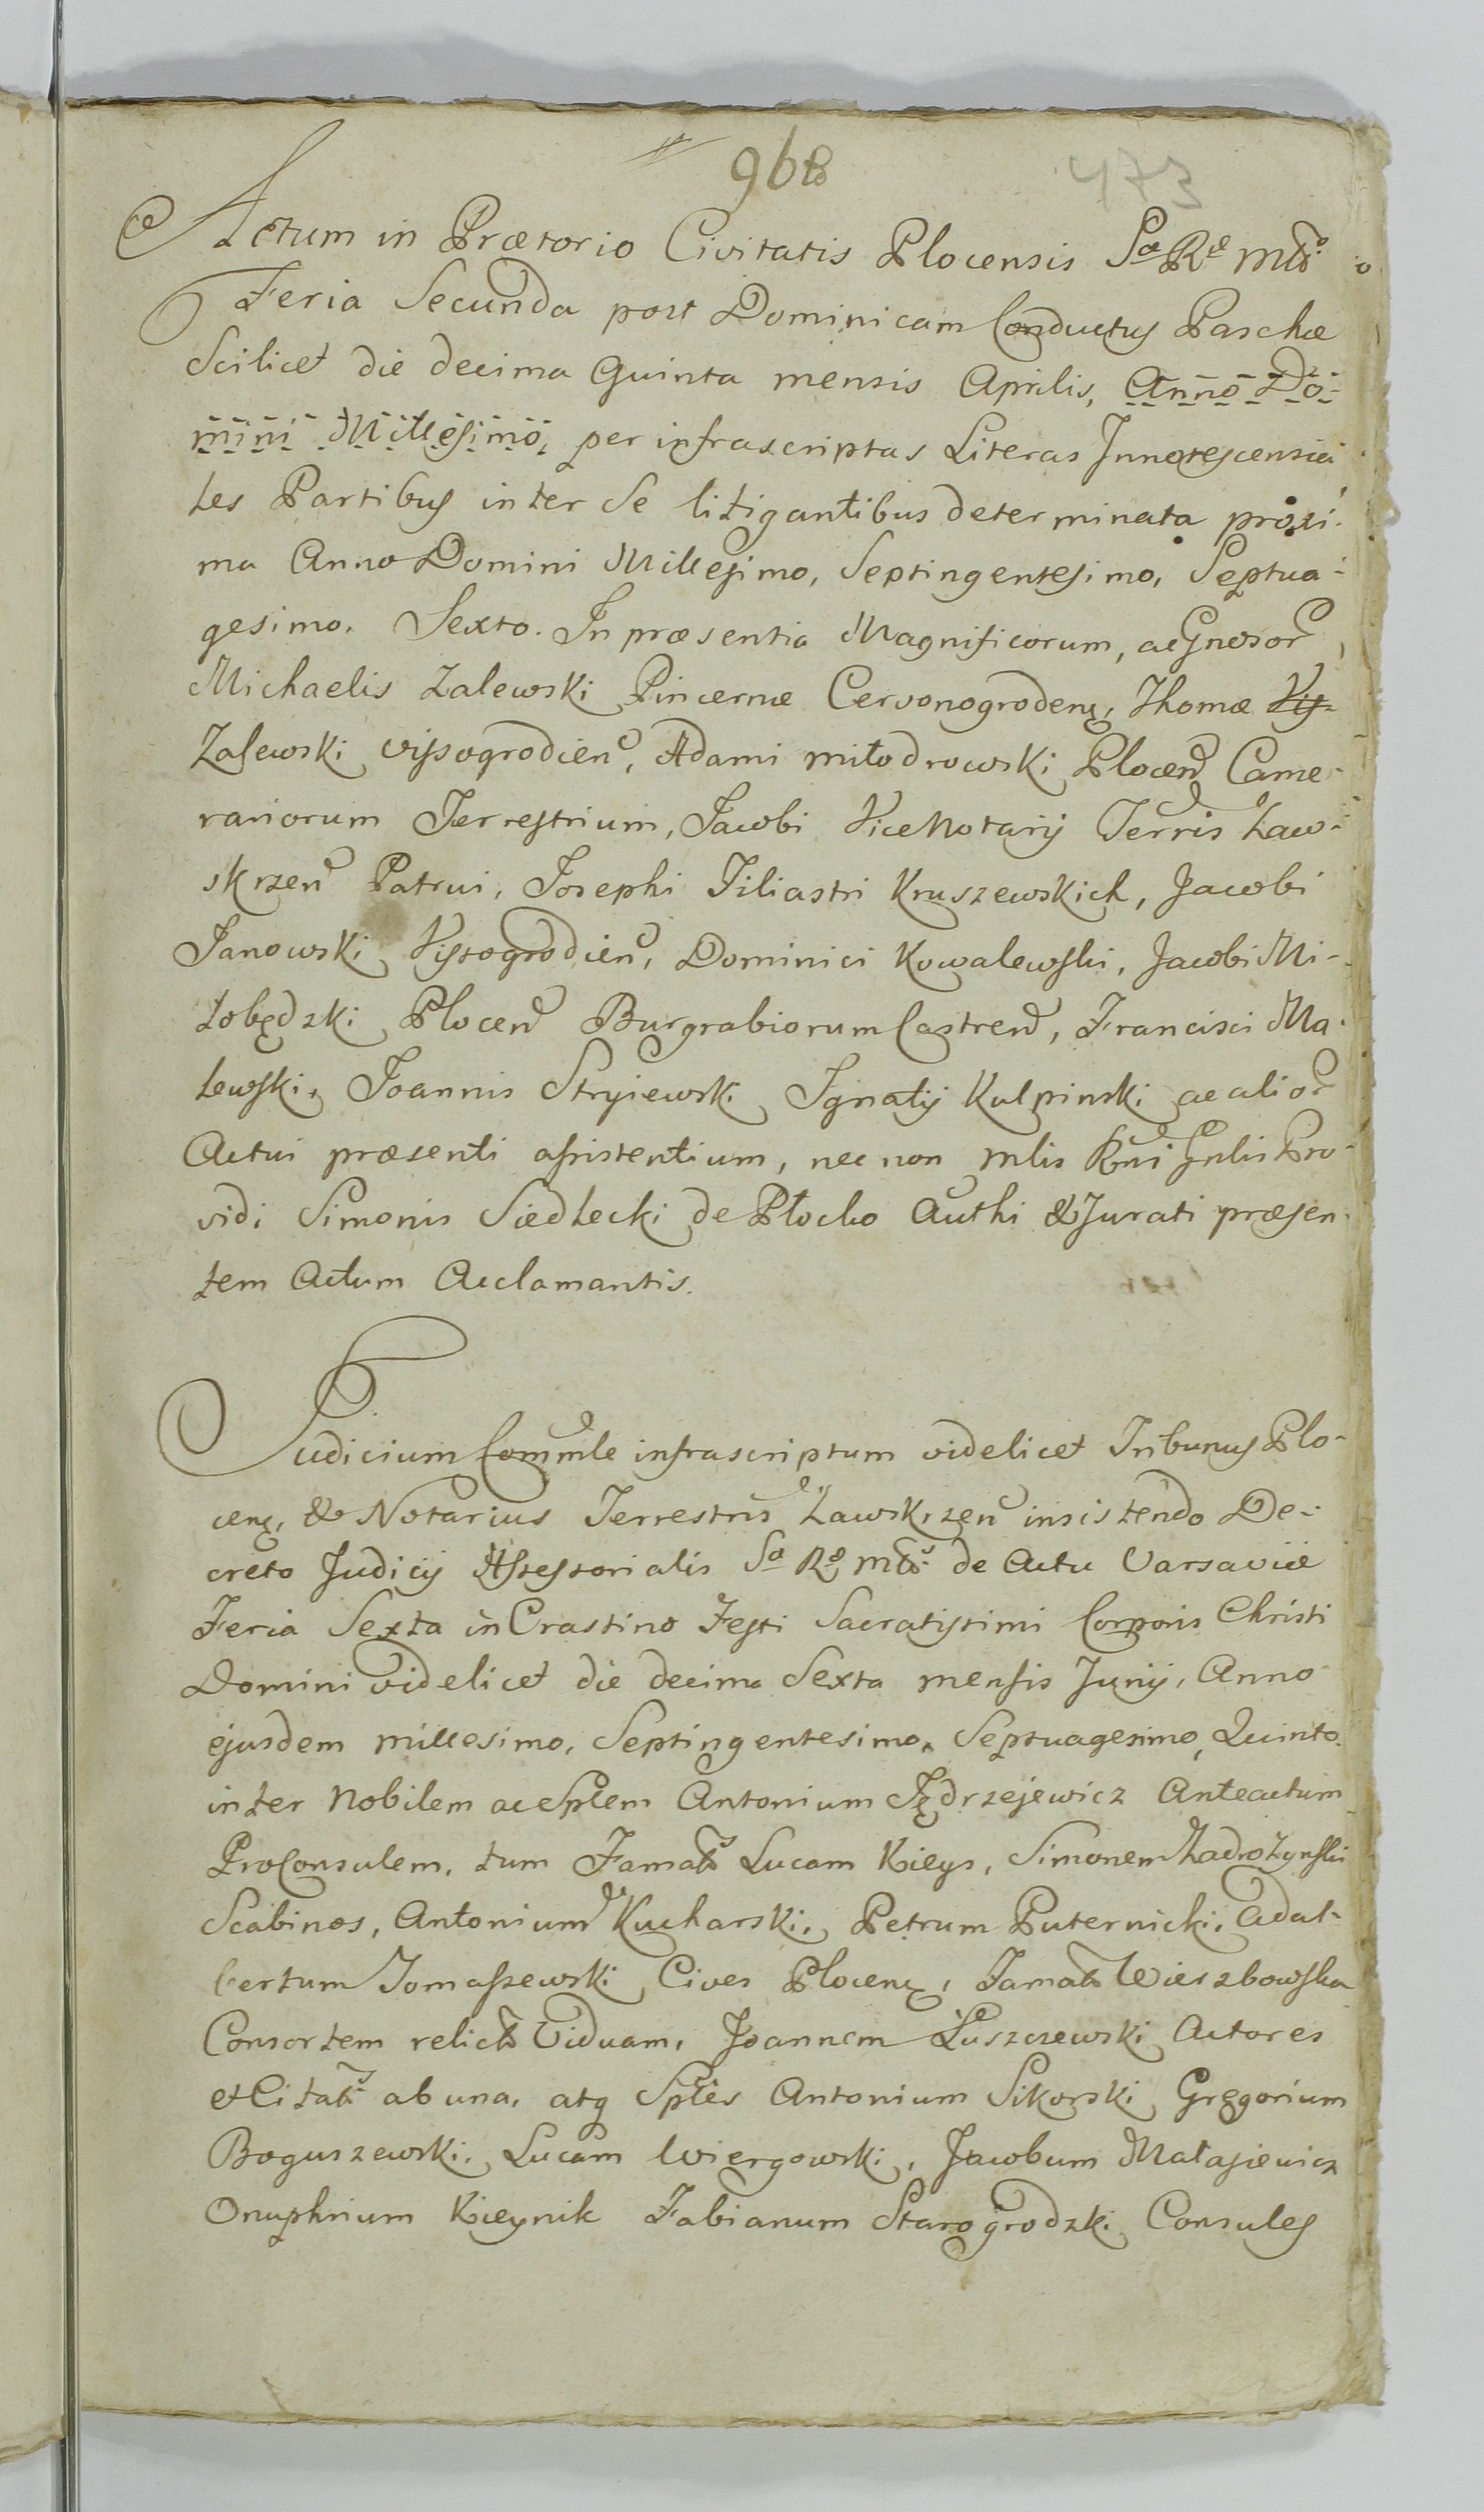 968
473
Actum in Prætorio Civitatis Plocensis Sæ Ræ Mttis
Feria Secunda post Dominicam Conductus Paschæ
Scilicet die decima Quinta mensis Aprilis, Anno Do-
mini Millesimo, per infrascriptas Literas Innotescentia-
les Partibus inter Se litigantibus determinata proxi-
ma Anno Domini Millesimo, Septingentesimo, Septua-
gesimo. Sexto. In præsentia Magnificorum, ac Gnrosor
Michaelis Zalewski Pincernæ Czervonogroden, Thomæ Vis-
Zalewski vissogrodien, Adami miłodrowski Plocen Came-
rariorum Terrestrium, Jacobi Vice Notarij Terris Zaw-
skrzen Patrui, Josephi Filiastri Kruszewskich, Jacobi
Janowski Vissogrodien, Dominici Kowalewski, Jacobi Mi-
łobędzki Plocen Burgrabiorum Castren, Francisci Ma-
lewski, Joannis Stryiewski Ignatij Kulpinski ac alior
Actui præsenti assistentium, nec non mlis Rni Gnlis Pro-
vidi Simonis Siedlecki de Płocko Authi & Jurati præsen-
tem Actum Acclamantis.
Judicium Commle infrascriptum videlicet Tribunus Plo-
cen, & Notarius Terrestris Zawskrzen insistendo De-
creto Judicij Assessorialis Sæ Ræ Mttis de Actu Varsaviæ
Feria Sexta in Crastino Festi Sacratissimi Corporis Christi
Domini videlicet die decima Sexta mensis Junij, Anno
ejusdem millesimo, Septingentesimo, Septuagesimo, Quinto.
inter Nobilem ac Splem Antonium Jędrzejewicz Anteactum
ProConsulem, tum Famats Lucam Kieys, Simonem Zadrożynski
Scabinos, Antonium Kucharski, Petrum Puternicki, Adal-
bertum Tomaszewski Cives Plocen, Famats Wierzbowska
Consortem relicts Viduam, Joannem Łuszczewski Actores
et Citats ab una, atq Sples Antonium Sikorski Gregorium
Boguszewski, Lucam Wiergowski, Jacobum Matasiewicz
Onuphrium Kieynik Fabianum Starogrodzki Consules